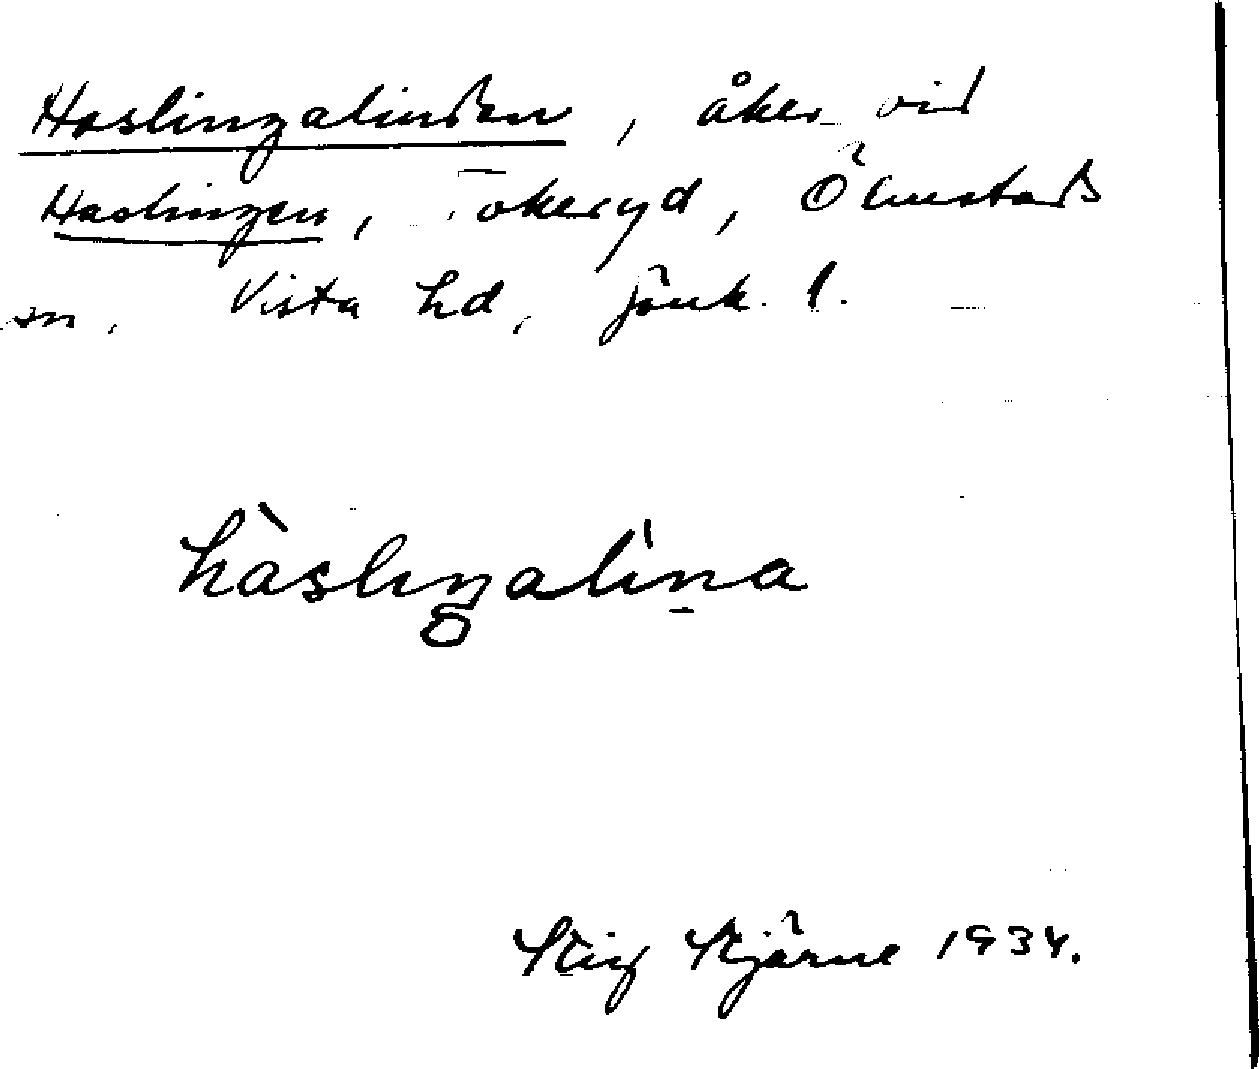 Haslingalinden, åker vid
Haslingen, Tokeryd, Ölmstads
sn. Vista hd, Jönk. l.
hàslıŋalína
Stig Stjärne 1934.